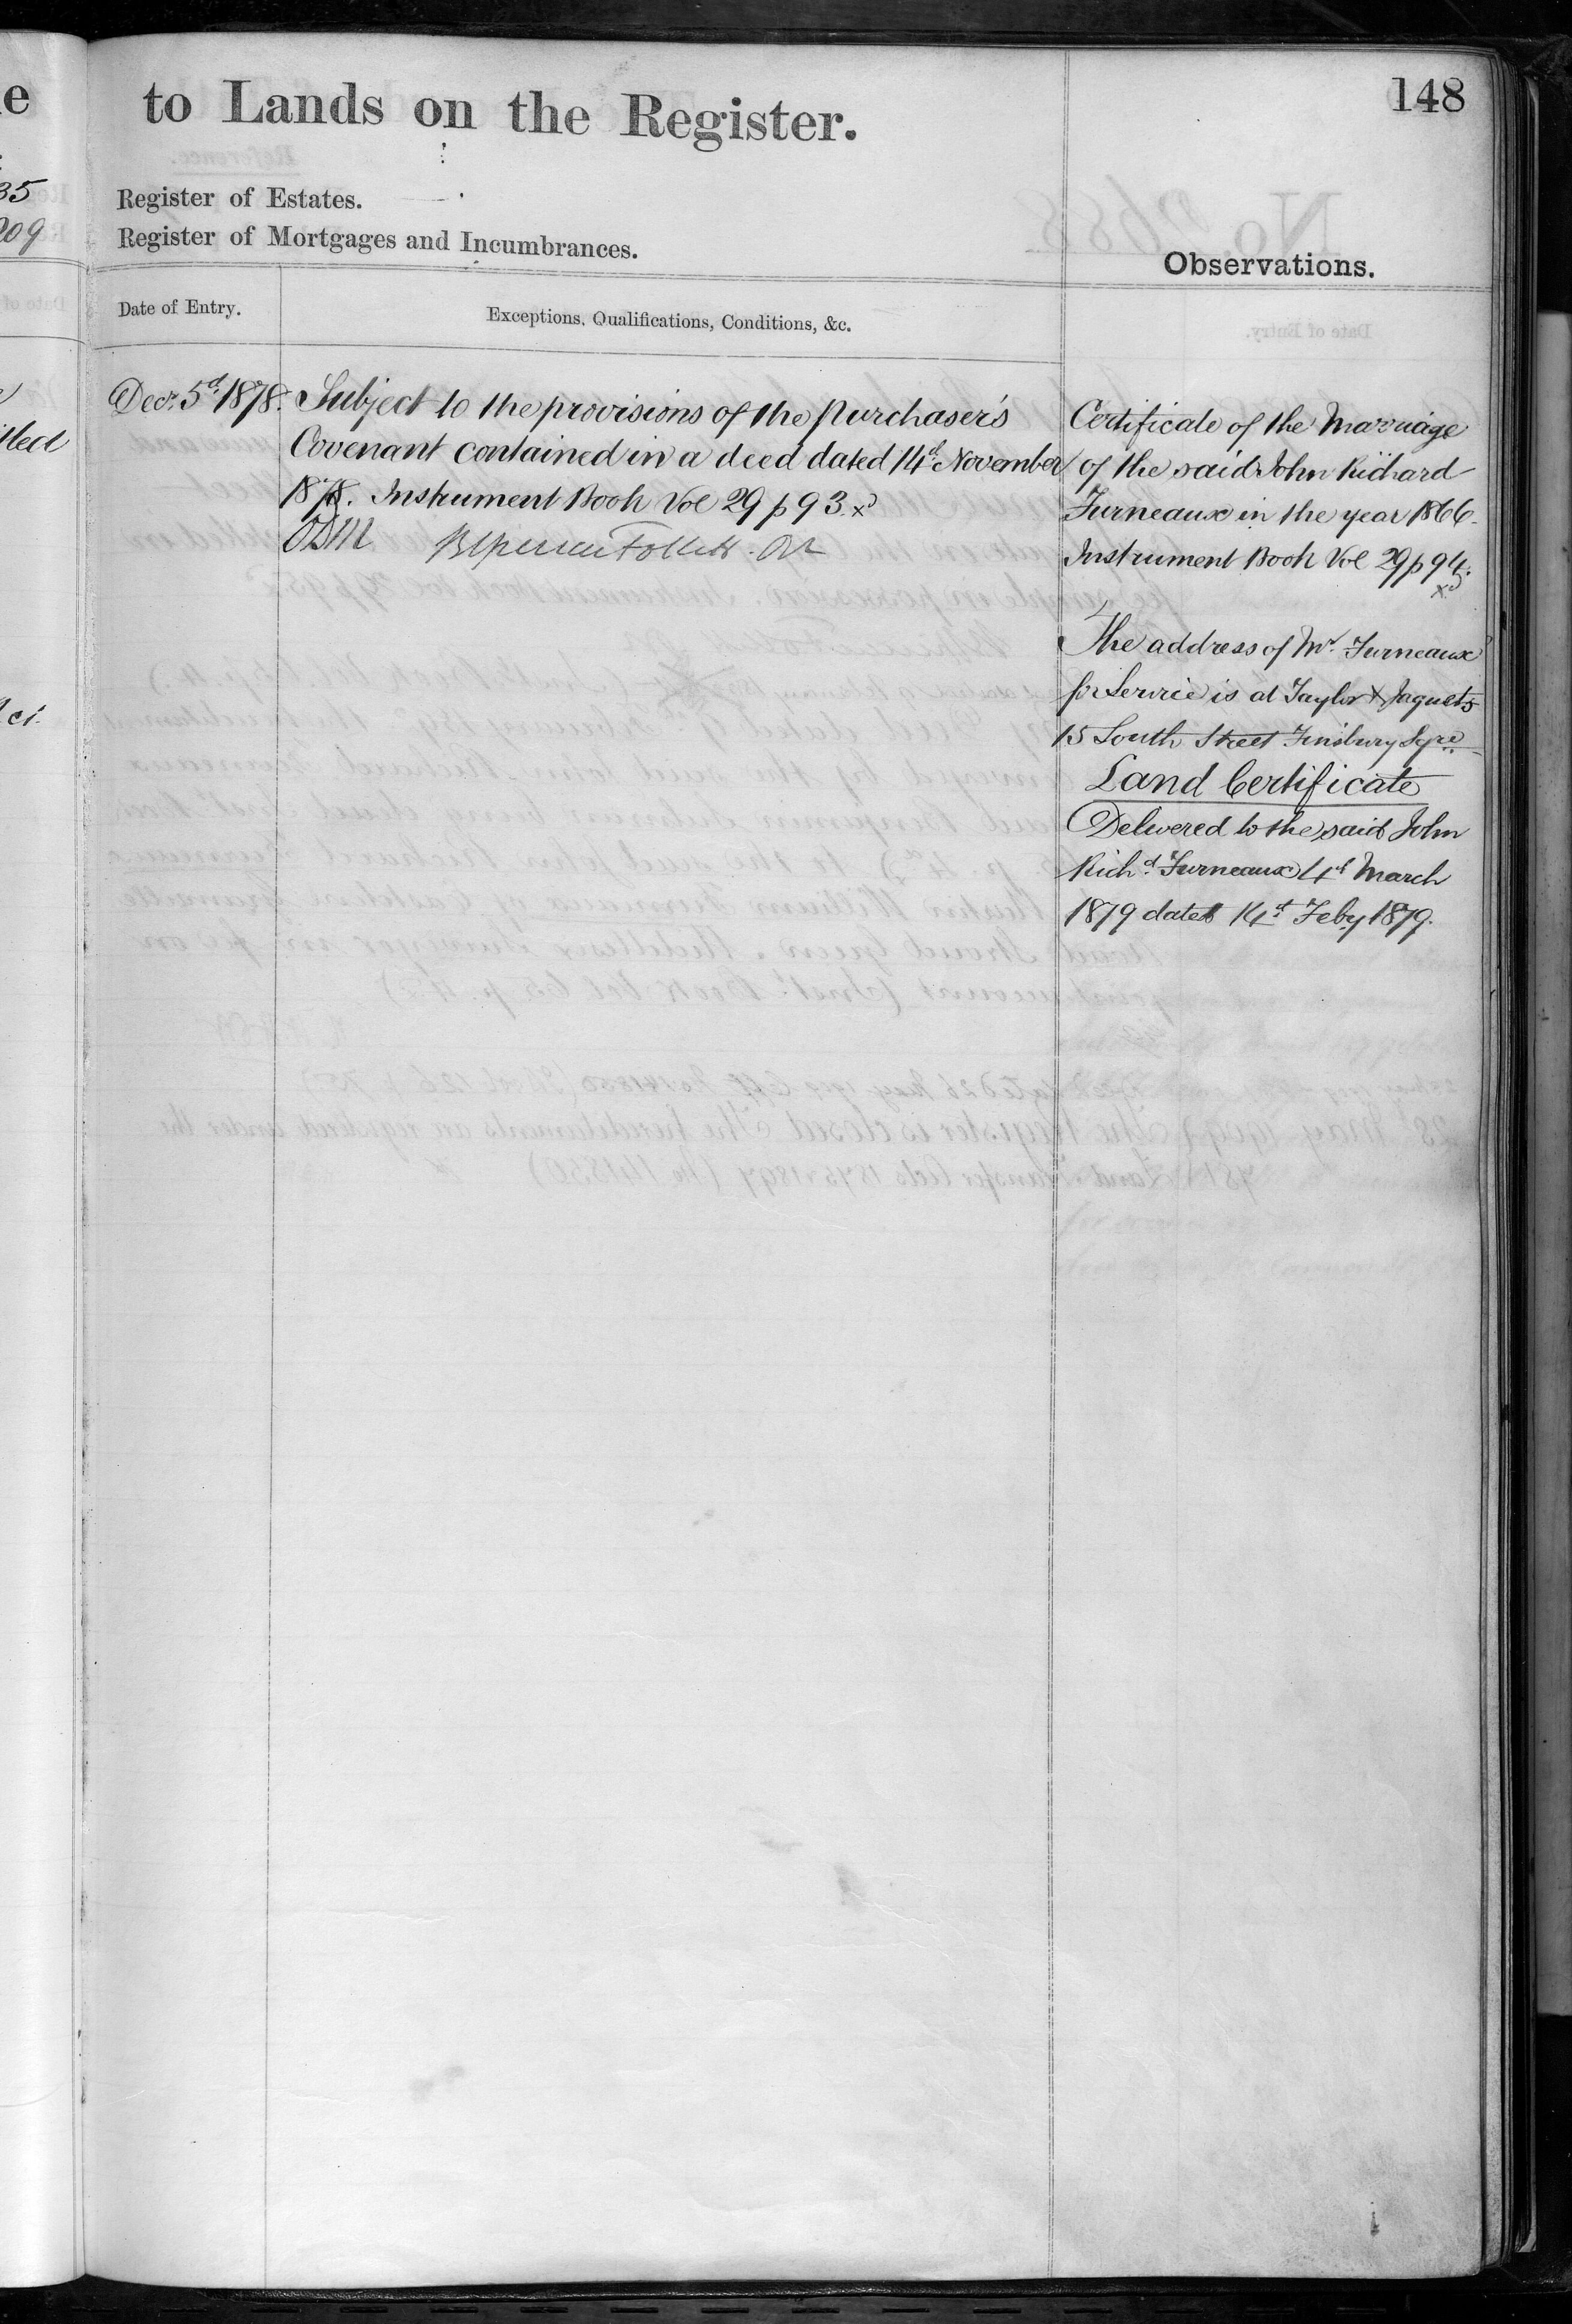 148
to Lands on the Register.
Register of Estates.
Register of Mortgages and Incumbrances.
Observations.
Date of Entry.
Exceptions, Qualifications, Conditions, &c.
Decr. 5d. 1878.
Subject to the provisions of the purchaser's
Covenant contained in a deed dated 14d. November
1878. Instrument Book Vol 29 p 93.
Follett
Certificate of the Marriage
of the said John Richard
Furneaux in the year 1866.
Instrument Book Vol 29 p 94.
The address of Mr. Furneaux
for Service is at Taylor & Jaquets
15 South Street Finsbury Sqre
Land Certificate
Delivered to the said John
Richd. Furneaux 4d March
1879 dated 14d. Feby 1879.